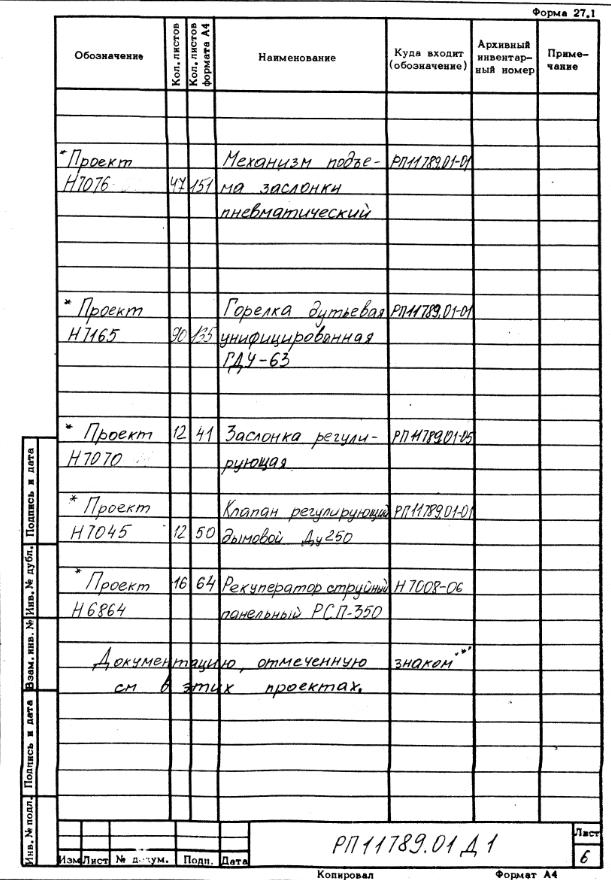 Форма 27.1
Обозначение Кол. листов Кол. листов формата А4 Наименование Куда входит (обозначение) Архивный инвентарный номер Приме-чание
*Проект Механизм подъе- РП11789.01-01
Н7076 47 151 ма заслонки
пневматический
* Проект Горелка дутьевая РП11789.01-01
Н7165 90 135 унифицированная
ГДУ-63
* Проект 12 41 Заслонка регули- РП11789.01-05
Н7070 рующая
* Проект Клапан регулирующий РП.11789.01-01
Н7045 12 50 дымовой Ду250
* Проект 16 64 Рекуператор струйный Н7008-06
Н6864 панельный РСП-350
Документацию, отмеченную знаком "*"
см в этих проектах.
Инв. № подл. Подпись и дата Взам. инв. № Инв. № дубл. Подпись и дата
РП11789.01 Д1
Лист
6
Изм Лист № докум. Подп. Дата
Копировал Формат А4